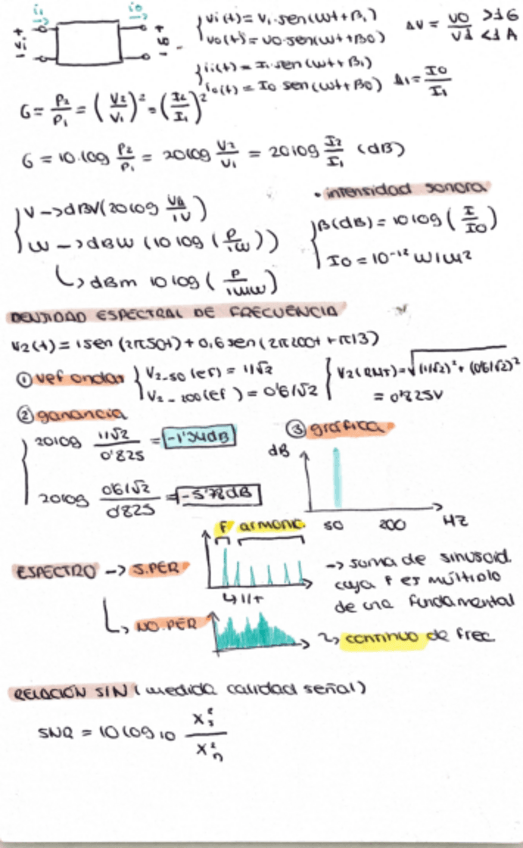 i₁ i₀
+ V₁ - + V₀ -
vi(t) = V₁·sen(ωt+β₁)
vo(t) = VO·sen(ωt+β0)
ΔV = VO/V1 >1 G <1 A
ii(t) = I₁·sen(ωt+β₁)
io(t) = Io sen(ωt+β0) Δ₁ = IO/I₁
G = P₂/P₁ = (V₂/V₁)² = (I₂/I₁)²
G = 10·log P₂/P₁ = 20log V₂/V₁ = 20log I₂/I₁ (dB)
V -> dBV (20log VA/1V)
W -> dBW (10 log (P/1W))
↳ dBm 10 log (P/1mW)
• intensidad sonora
β(dB) = 10 log (I/IO)
IO = 10⁻¹² W/m²
DENSIDAD ESPECTRAL DE FRECUENCIA
V2(t) = 1sen (2π50t) + 0,6 sen (2π200t + π/3)
① Vef ondas V₂₋₅₀ (ef) = 1/√2
V₂₋₂₀₀ (ef) = 0'6/√2
V2(RMS) = √(1/√2)² + (0'6/√2)²
= 0'825V
② ganancia
20log 1/√2 / 0'825 = -1'34dB
20log 0'6/√2 / 0'825 = -5'78dB
③ gráfica
dB
50 200 HZ
ESPECTRO -> S.PER
F armonic.
4 1/t
-> suma de sinusoid.
cuya f es múltiplo
de una fundamental
↳ NO.PER
↳ continuo de frec.
RELACIÓN S/N (medida calidad señal)
SNR = 10 log 10 X²s / X²n